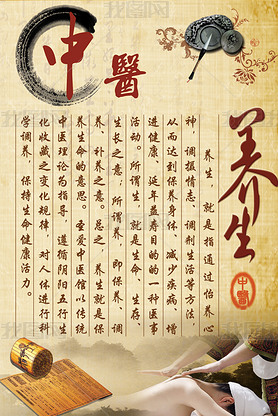 中醫
养生
中醫
养生，就是指通过怡养心
神，调摄情志、调剂生活等方法
从而达到保养身体、减少疾病、增
进健康、延年益寿目的的一种医事
活动。所谓生，就是生命、生存、
生长之意；所谓养，即保养、调
养、补养之意。总之，养生就是保
养生命的意思。圣爱中医馆以传统
中医理论为指导，遵循阴阳五行生
化收藏之变化规律，对人体进行科
学调养，保持生命健康活力。